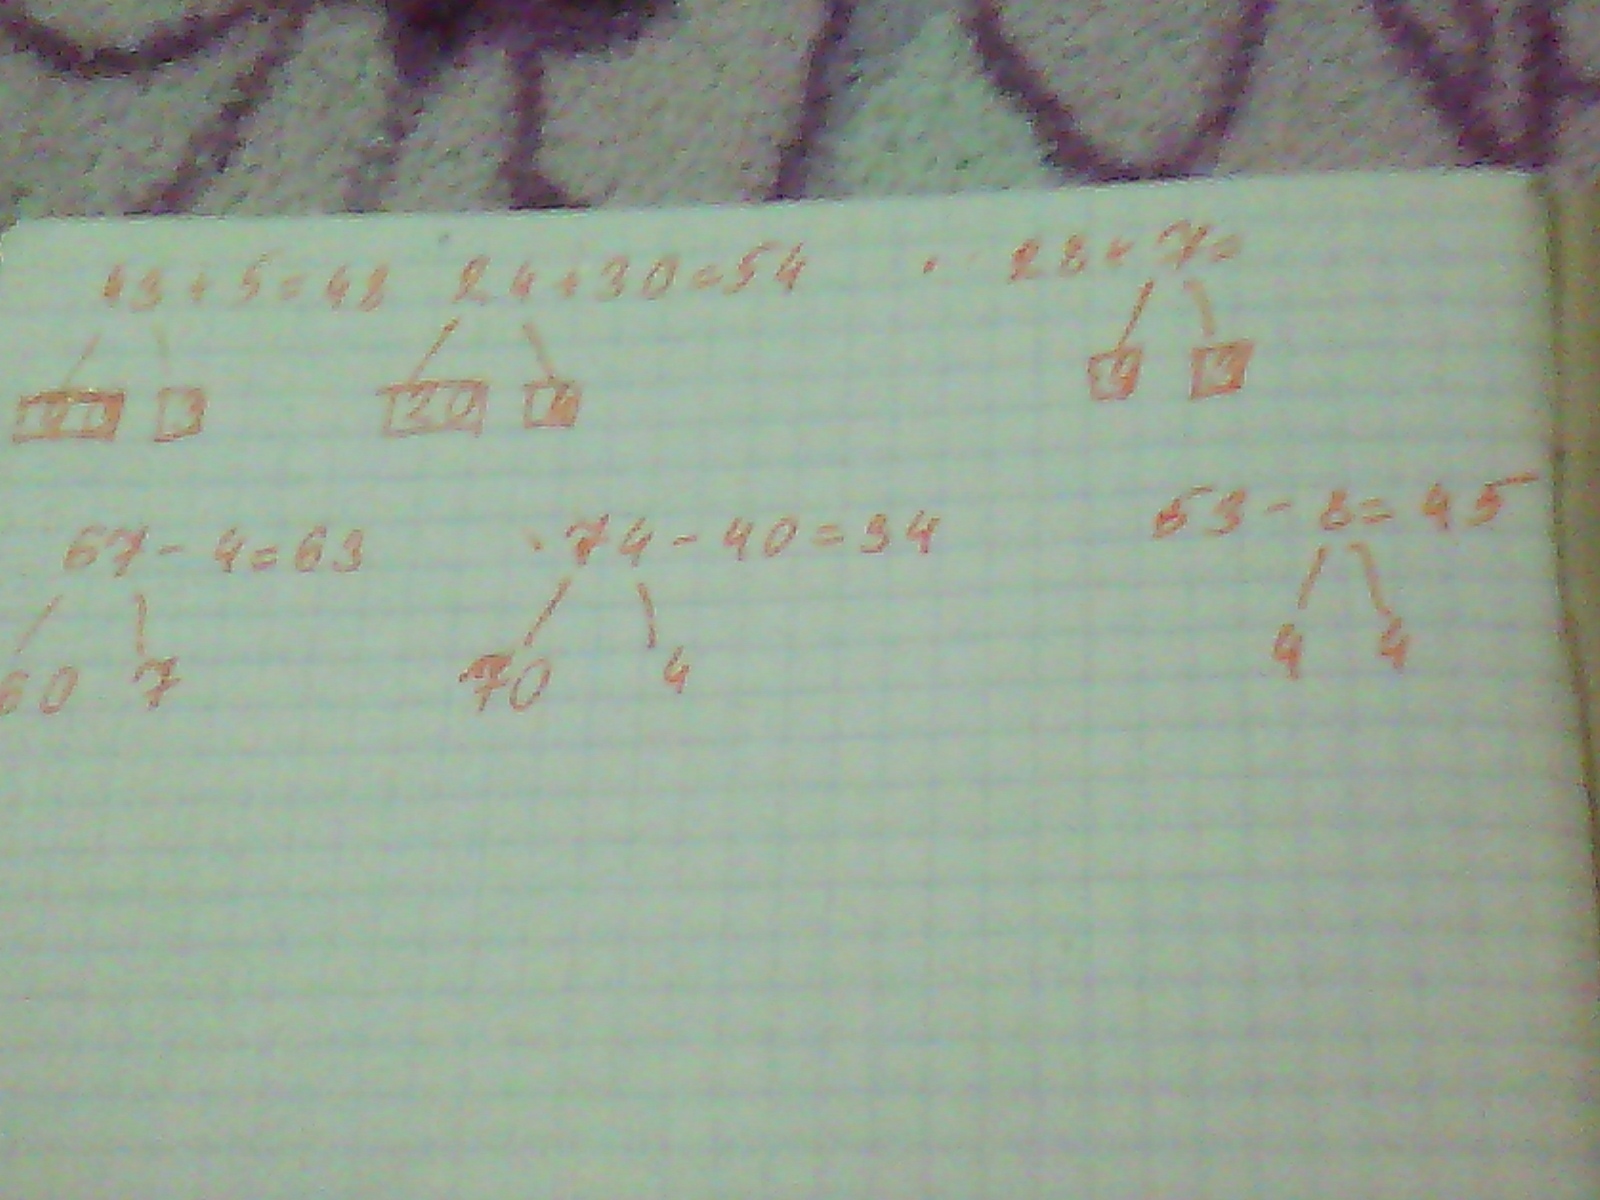 43+5=48 24+30=54 28+7=
40 3 20 4 4 3
67-4=63 74-40=34 53-8=45
60 7 70 4 4 4